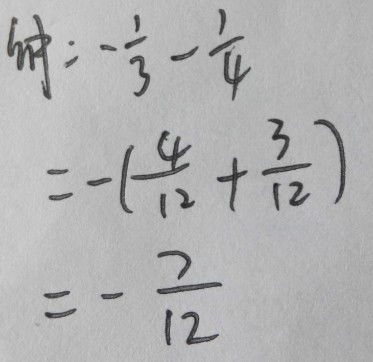 解：-1/3 - 1/4
= -(4/12 + 3/12)
= - 7/12